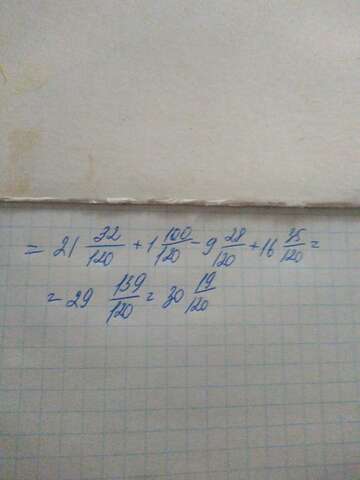 = 21 32/120 + 1 100/120 - 9 28/120 + 16 35/120 =
= 29 139/120 = 30 19/120